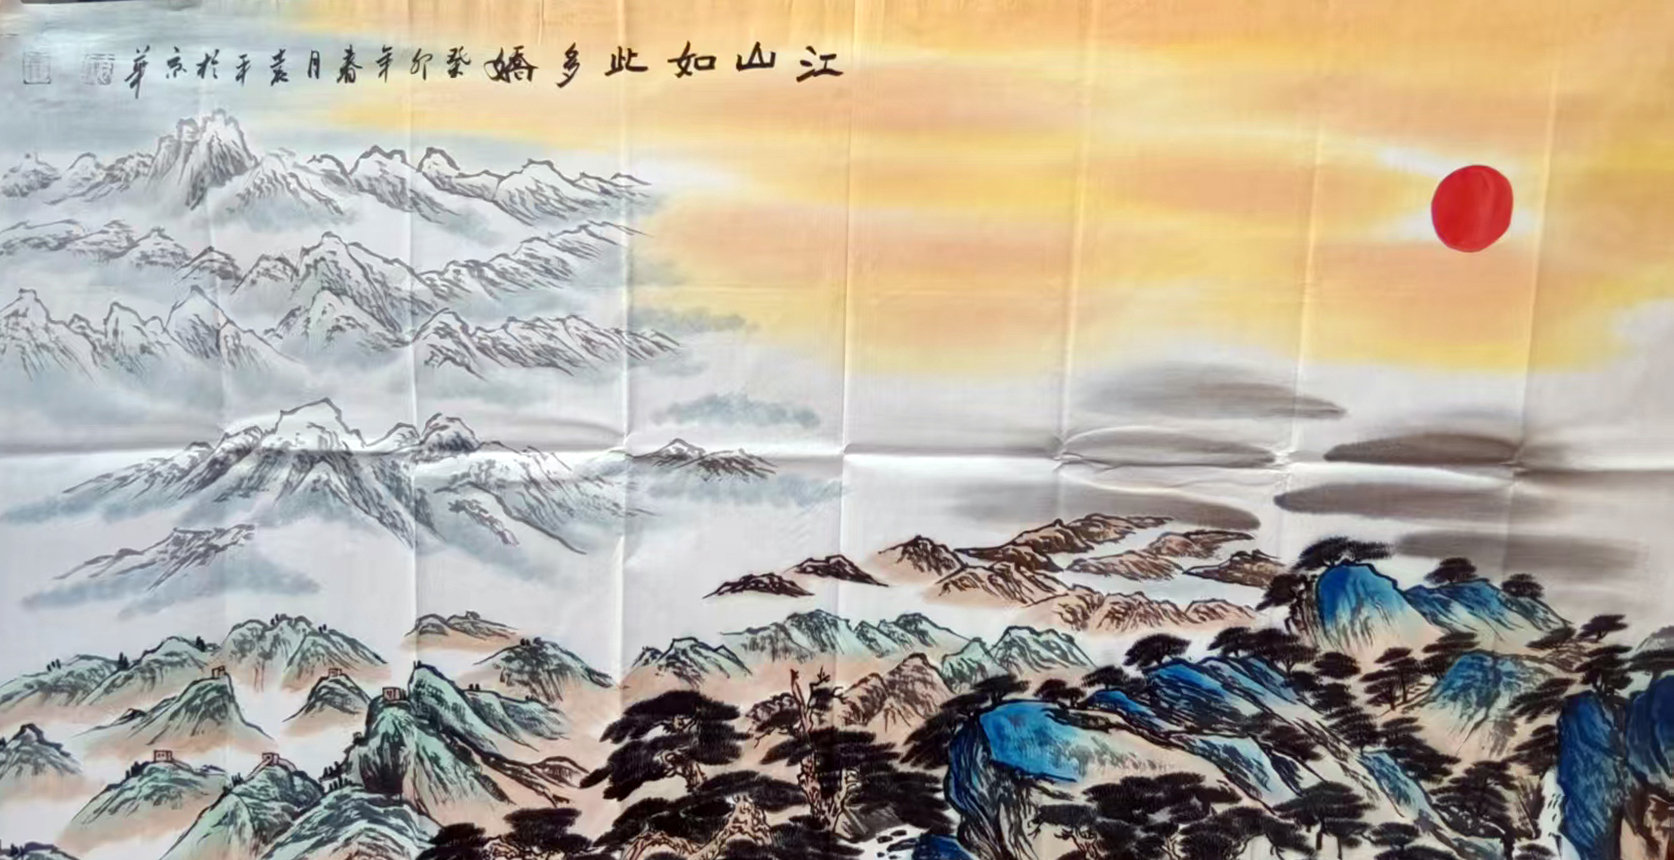 江山如此多娇癸卯年春月袁平於京华